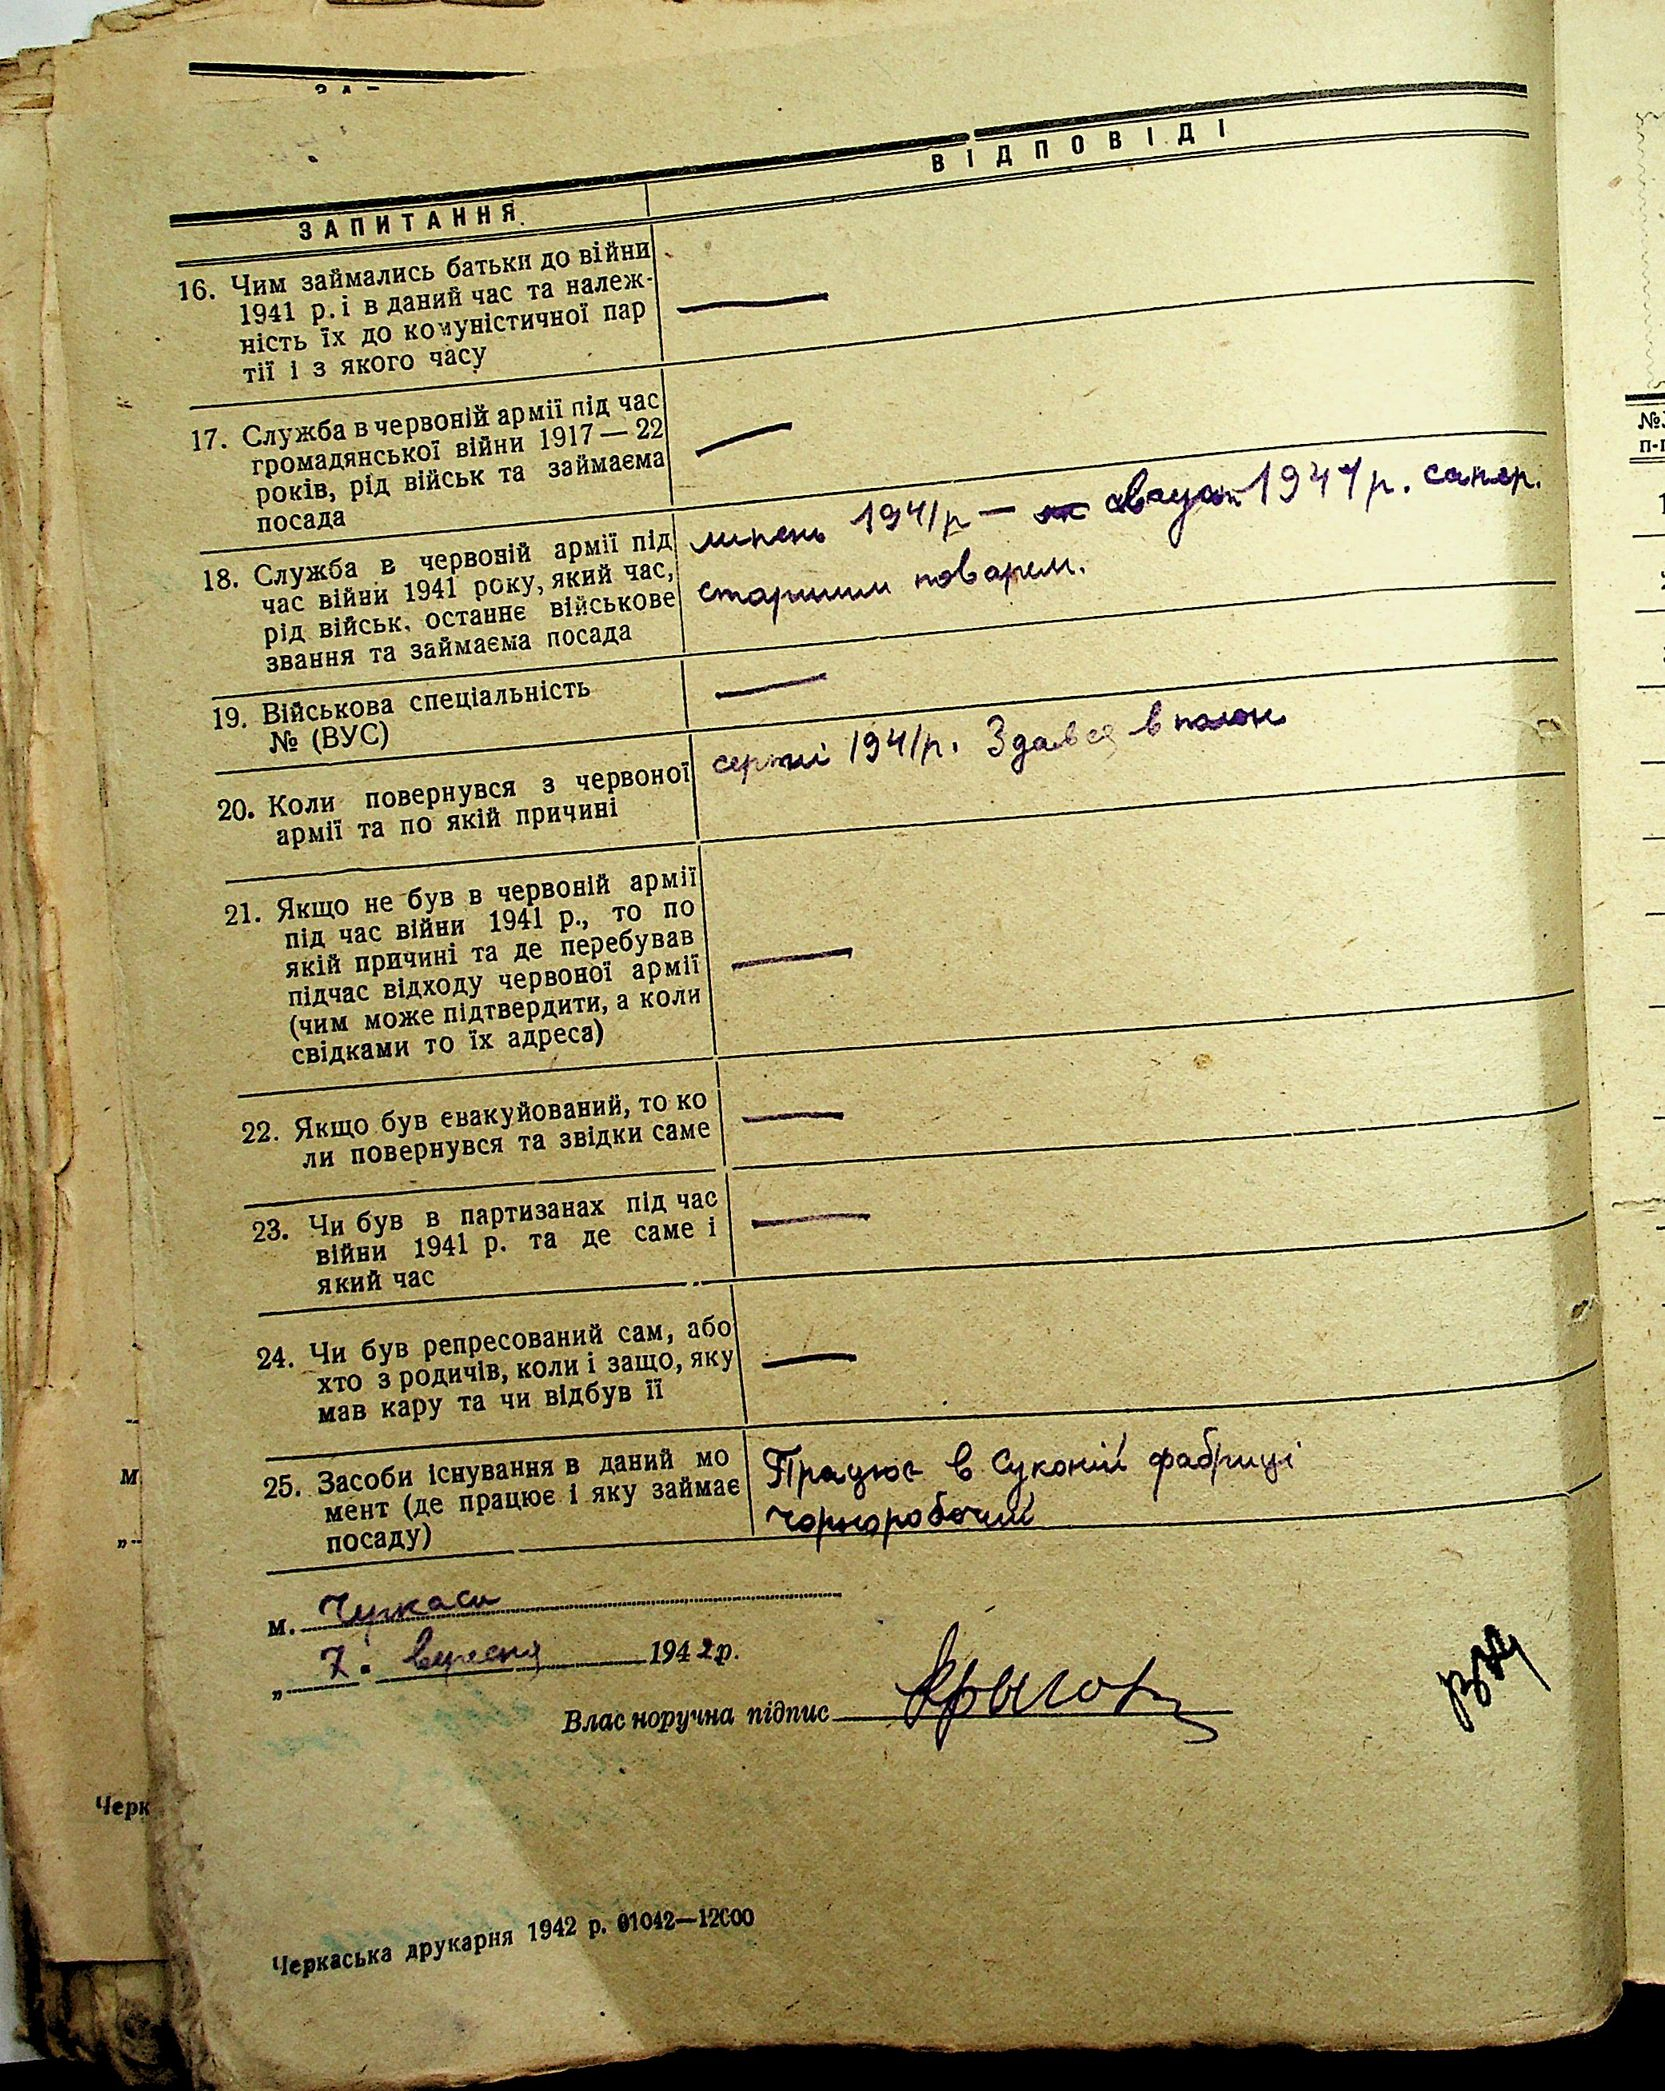 ЗАПИТАННЯ
ВІДПОВІДІ
16. Чим займались батьки до війни
1941 р. і в даний час та належ-
ність їх до комуністичної пар
тії і з якого часу
—
17. Служба в червоній армії під час
громадянської війни 1917—22
років, рід військ та займаєма
посада
—
18. Служба в червоній армії під
час війни 1941 року, який час,
рід військ, останнє військове
звання та займаєма посада
липень 1941р — август 1941р. сапер.
старшим поваром.
19. Військова спеціальність
№ (ВУС)
—
20. Коли повернувся з червоної
армії та по якій причині
серпні 1941р. Здався в полон
21. Якщо не був в червоній армії
під час війни 1941 р., то по
якій причині та де перебував
підчас відходу червоної армії
(чим може підтвердити, а коли
свідками то їх адреса)
—
22. Якщо був евакуйований, то ко
ли повернувся та звідки саме
—
23. Чи був в партизанах під час
війни 1941 р. та де саме і
який час
—
24. Чи був репресований сам, або
хто з родичів, коли і защо, яку
мав кару та чи відбув її
—
25. Засоби існування в даний мо
мент (де працює і яку займає
посаду)
Працює в Суконій фабриці
чорноробочий
м. Черкаси
„ 7. вересня 1942р.
Власноручна підпис
Черкаська друкарня 1942 р. 01042—12000
Черк
м
№
п-п